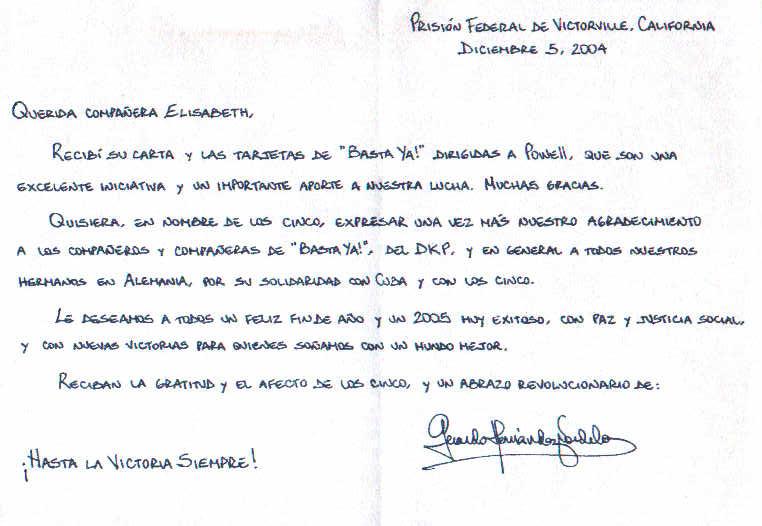 PRISIÓN FEDERAL DE VICTORVILLE, CALIFORNIA
DICIEMBRE 5, 2004
QUERIDA COMPAÑERA ELISABETH,
RECIBÍ SU CARTA Y LAS TARJETAS DE "BASTA YA!" DIRIGIDAS A POWELL, QUE SON UNA
EXCELENTE INICIATIVA Y UN IMPORTANTE APORTE A NUESTRA LUCHA. MUCHAS GRACIAS.
QUISIERA, EN NOMBRE DE LOS CINCO, EXPRESAR UNA VEZ MÁS NUESTRO AGRADECIMIENTO
A LOS COMPAÑEROS Y COMPAÑERAS DE "BASTA YA!", DEL DKP, Y EN GENERAL A TODOS NUESTROS
HERMANOS EN ALEMANIA, POR SU SOLIDARIDAD CON CUBA Y CON LOS CINCO.
LE DESEAMOS A TODOS UN FELIZ FIN DE AÑO Y UN 2005 MUY EXITOSO, CON PAZ Y JUSTICIA SOCIAL,
Y CON NUEVAS VICTORIAS PARA QUIENES SOÑAMOS CON UN MUNDO MEJOR.
RECIBAN LA GRATITUD Y EL AFECTO DE LOS CINCO, Y UN ABRAZO REVOLUCIONARIO DE:
Gerardo Hernández Nordelo
¡HASTA LA VICTORIA SIEMPRE!